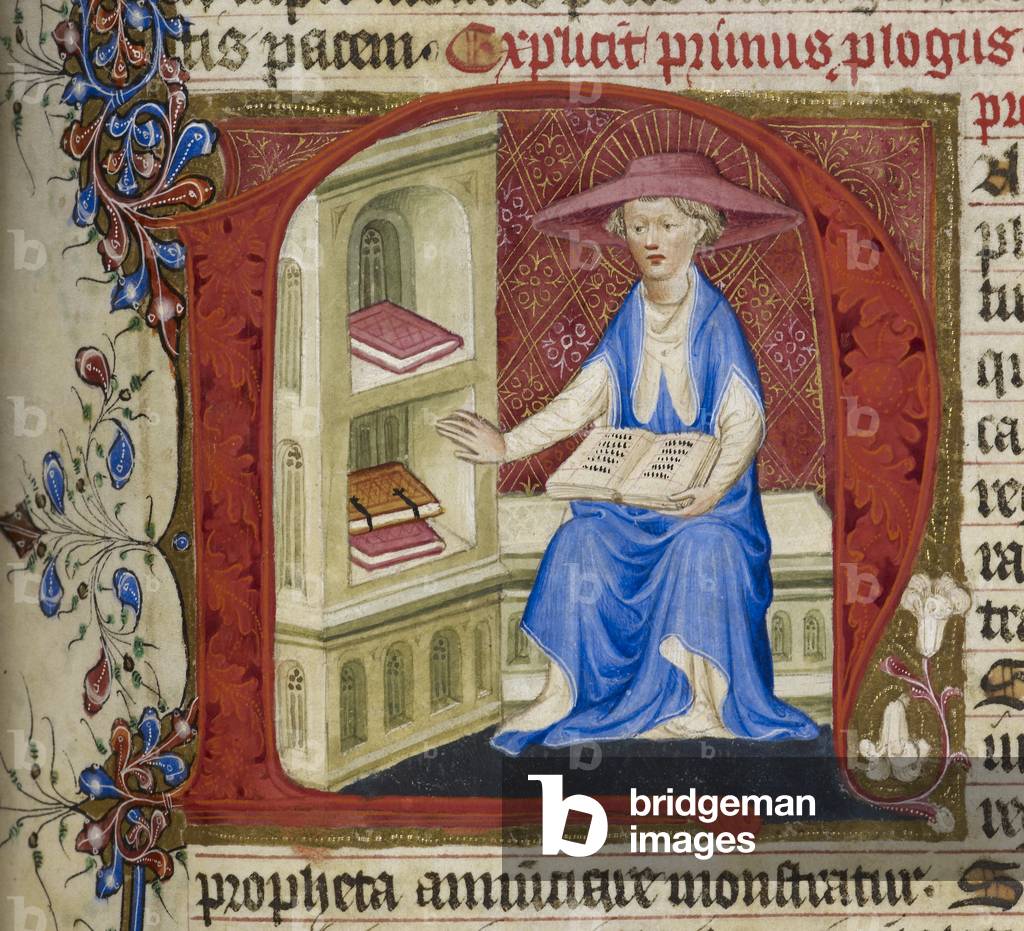 tis pacem. Explicit primus plogus
pr
A
pl
tu
qu
ca
re
ra
tra
S
re
propheta annūciare monstratur. S
b bridgeman
images